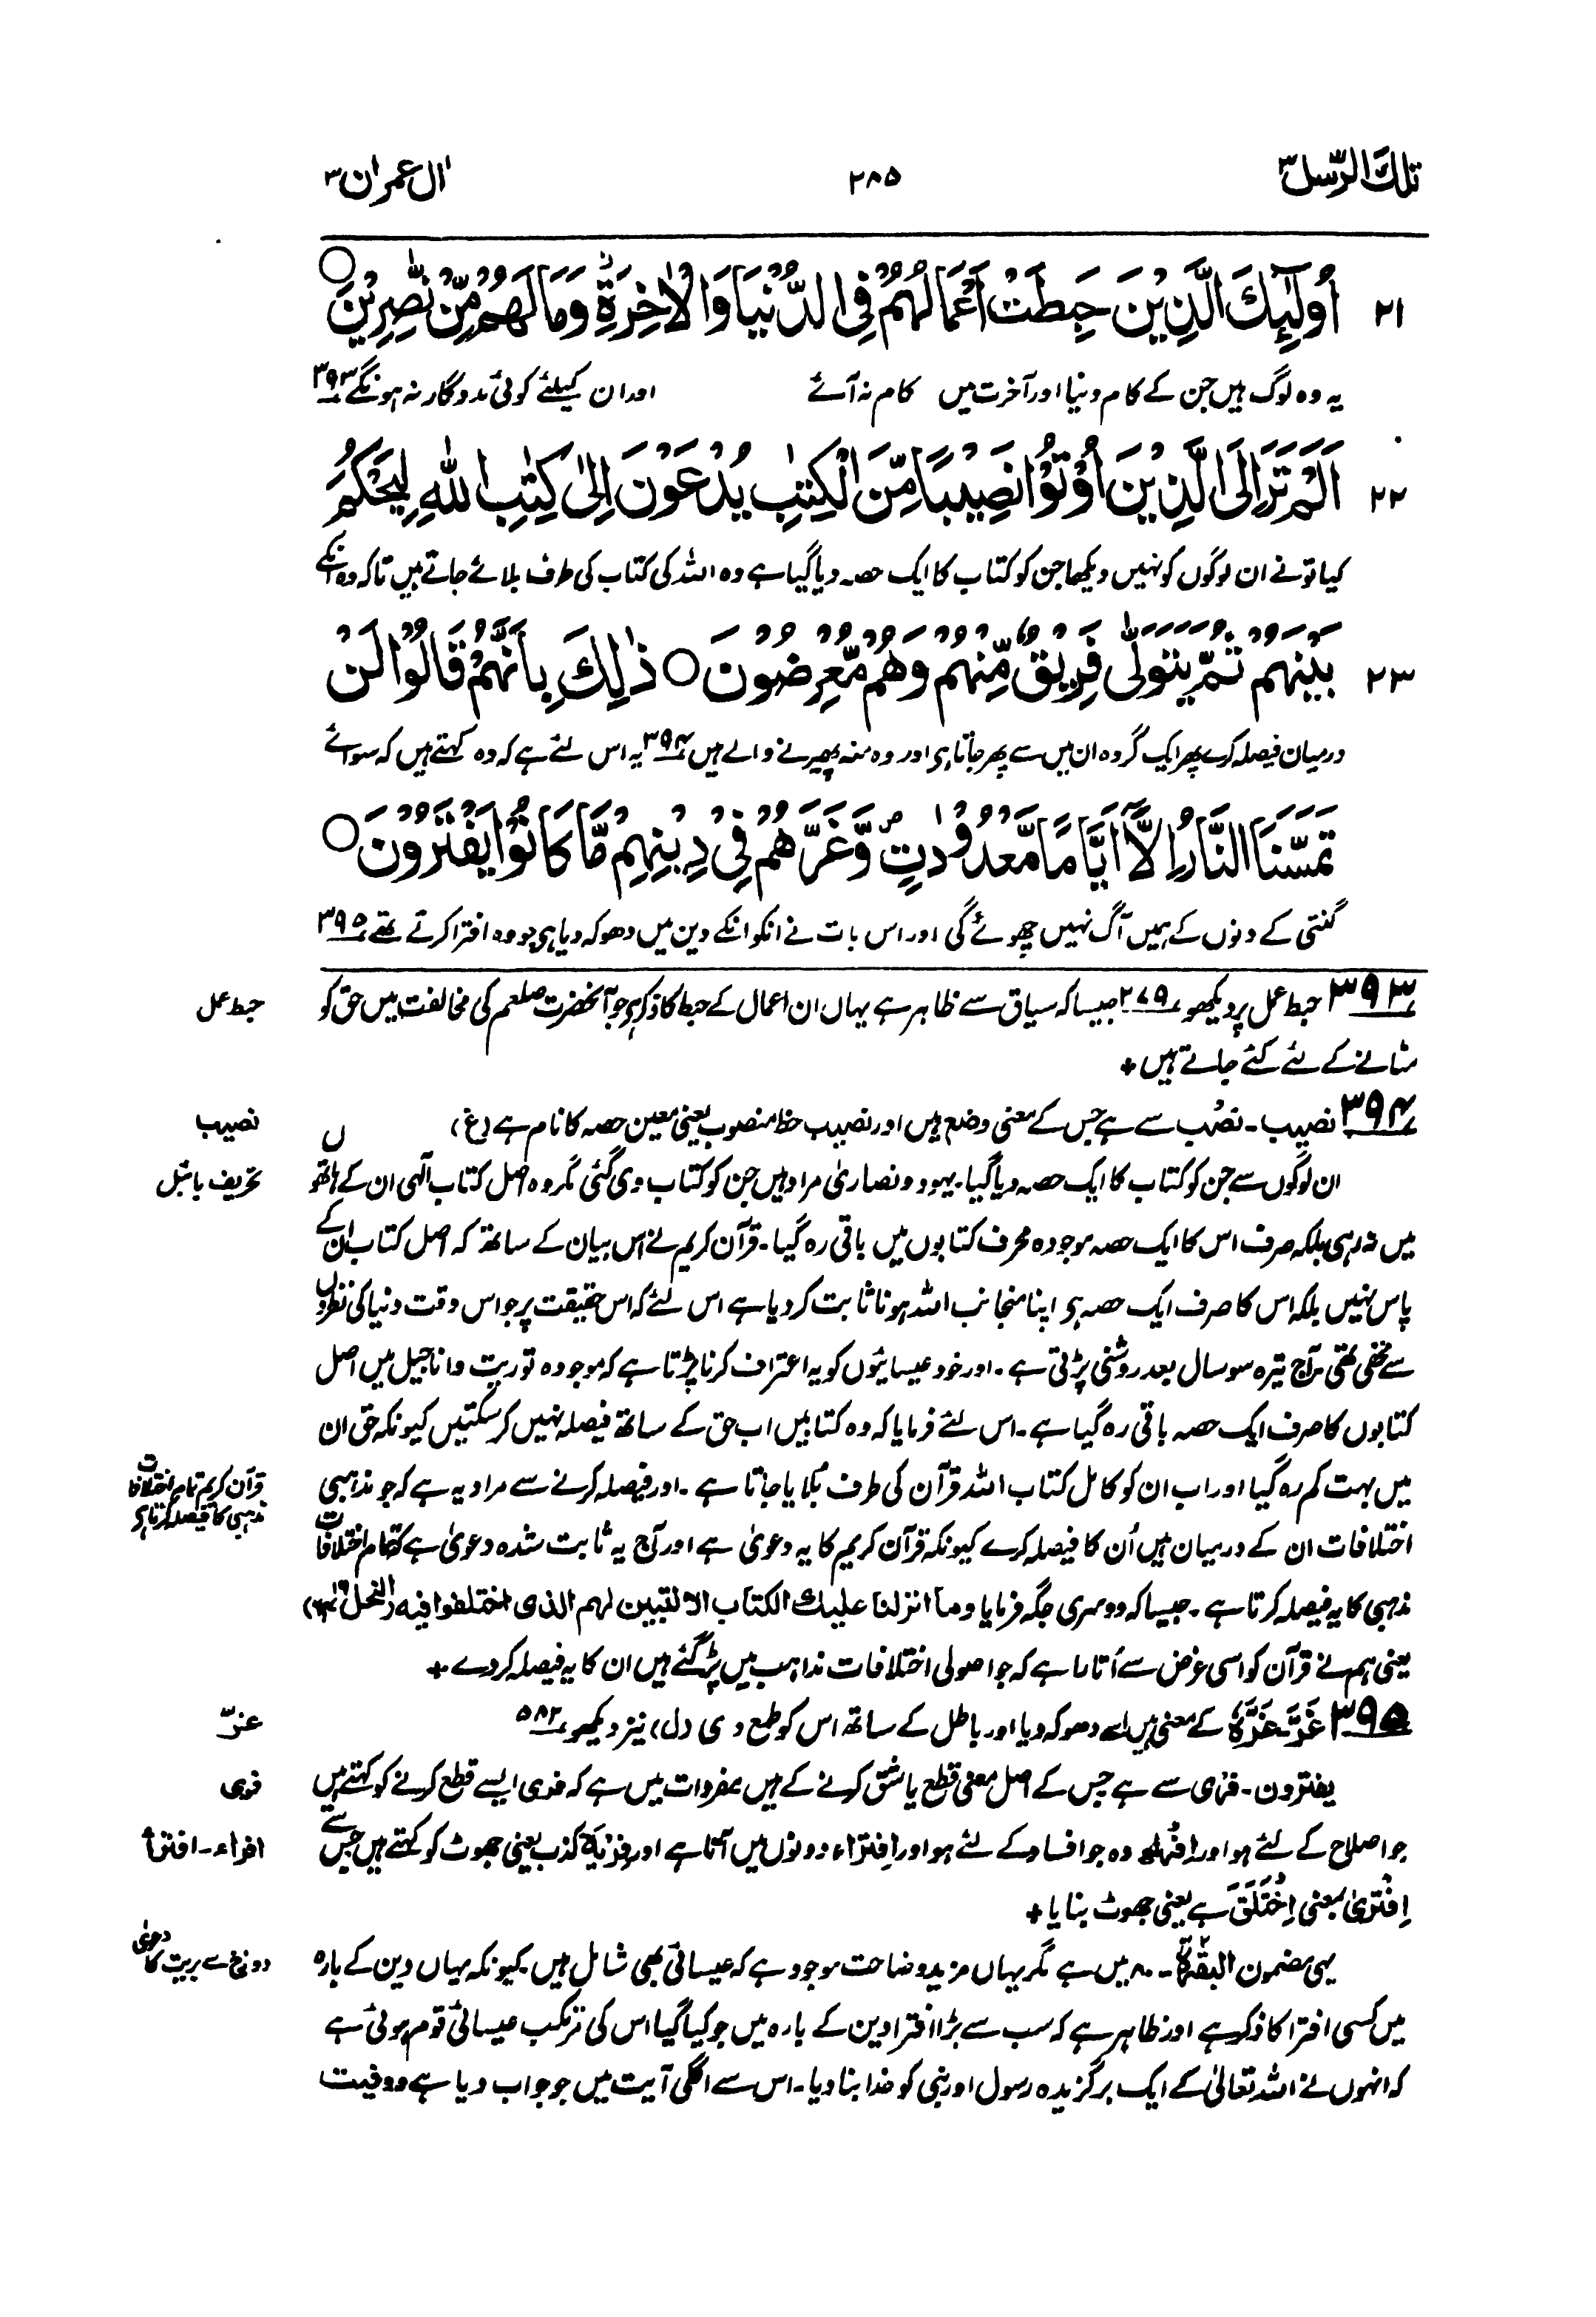 تلك الرّسل ۳
۲۸۵
اٰل عمران ۳
۲۱ اُولٰٓئِكَ الَّذِيْنَ حَبِطَتْ اَعْمَالُهُمْ فِي الدُّنْيَا وَالْاٰخِرَةِ ۫ وَمَا لَهُمْ مِّنْ نّٰصِرِيْنَ ○
یہ وہ لوگ ہیں جن کے کام دنیا اور آخرت میں کام نہ آئے اور ان کیلئے کوئی مددگار نہ ہونگے ۳۹۳
۲۲ اَلَمْ تَرَ اِلَى الَّذِيْنَ اُوْتُوْا نَصِيْبًا مِّنَ الْكِتٰبِ يُدْعَوْنَ اِلٰى كِتٰبِ اللّٰهِ لِيَحْكُمَ
کیا تو نے ان لوگوں کو نہیں دیکھا جن کو کتاب کا ایک حصہ دیا گیا ہے وہ اللہ کی کتاب کی طرف بلائے جاتے ہیں تاکہ وہ انکے
۲۳ بَيْنَهُمْ ثُمَّ يَتَوَلّٰى فَرِيْقٌ مِّنْهُمْ وَهُمْ مُّعْرِضُوْنَ ○ ذٰلِكَ بِاَنَّهُمْ قَالُوْا لَنْ
درمیان فیصلہ کرے پھر ایک گروہ ان میں سے پھر جاتا ہی اور وہ منہ پھیرنے والے ہیں ۳۹۴ یہ اس لئے ہے کہ وہ کہتے ہیں کہ سوائے
تَمَسَّنَا النَّارُ اِلَّآ اَيَّامًا مَّعْدُوْدٰتٍ ۠ وَّغَرَّهُمْ فِيْ دِيْنِهِمْ مَّا كَانُوْا يَفْتَرُوْنَ ○
گنتی کے دنوں کے ہمیں آگ نہیں چھوئے گی اور اس بات نے انکو انکے دین میں دھوکہ دیا ہی جو وہ افترا کرتے تھے ۳۹۵
۳۹۳ حبط عمل پر دیکھو ۲۷۹ جیسا کہ سیاق سے ظاہر ہے یہاں ان اعمال کے حبط کا ذکر ہی جو آنحضرت صلعم کی مخالفت میں حق کو
حبط عمل
مٹانے کے لئے کئے جاتے ہیں +
۳۹۴ نصیب ۔ نصْب سے ہے جس کے معنی وضع ہیں اور نصیب حظ منصوب یعنی معین حصہ کا نام ہے (غ)
نصیب
ان لوگوں سے جن کو کتاب کا ایک حصہ دیا گیا۔ یہود و نصاریٰ مراد ہیں جن کو کتاب دی گئی مگر وہ اصل کتاب الٰہی ان کے ہاتھوں
تحریف بائبل
میں نہ رہی بلکہ صرف اس کا ایک حصہ موجودہ محرف کتابوں میں باقی رہ گیا۔ قرآن کریم نے اس بیان کے ساتھ کہ اصل کتاب ان کے
پاس نہیں بلکہ اس کا صرف ایک حصہ ہی اپنا منجانب اللہ ہونا ثابت کر دیا ہے اس لئے کہ اس حقیقت پر جو اس وقت دنیا کی نظروں
سے مخفی تھی آج تیرہ سو سال بعد روشنی پڑتی ہے ۔ اور خود عیسائیوں کو یہ اعتراف کرنا پڑتا ہے کہ موجودہ توریت و اناجیل میں اصل
کتابوں کا صرف ایک حصہ باقی رہ گیا ہے ۔ اس لئے فرمایا کہ وہ کتابیں اب حق کے ساتھ فیصلہ نہیں کر سکتیں کیونکہ حق ان
میں بہت کم رہ گیا اور اب ان کو کامل کتاب اللہ قرآن کی طرف بُلایا جاتا ہے ۔ اور فیصلہ کرنے سے مراد یہ ہے کہ جو مذہبی
قرآن کریم تمام اختلافات مذہبی کا فیصلہ کرتا ہی
اختلافات ان کے درمیان ہیں اُن کا فیصلہ کرے کیونکہ قرآن کریم کا یہ دعویٰ ہے اور آج یہ ثابت شدہ دعویٰ ہے کہ تمام اختلافات
مذہبی کا یہ فیصلہ کرتا ہے ۔ جیسا کہ دوسری جگہ فرمایا وما انزلنا علیك الکتاب الا لتبین لہم الذی اختلفوا فیہ (النحل ۱۶ـ۶۴)
یعنی ہم نے قرآن کو اسی غرض سے اُتارا ہے کہ جو اصولی اختلافات مذاہب میں پڑ گئے ہیں ان کا یہ فیصلہ کردے +
۳۹۵ غَرَّ ۔ غَرَّہٗ کے معنی ہیں اسے دھوکہ دیا اور باطل کے ساتھ اس کو طمع دی (ل) نیز دیکھو ۵۸۲
غرّ
یفترون ۔ فری سے ہے جس کے اصل معنی قطع یا شق کرنے کے ہیں مفردات میں ہے کہ فری ایسے قطع کرنے کو کہتے ہیں
فری
جو اصلاح کے لئے ہو اور اِفراء وہ جو افساد کے لئے ہو اور اِفتراء دونوں میں آتا ہے اور فِرْیَة کذب یعنی جھوٹ کو کہتے ہیں جس سے
افراء ۔ افتراء
اِفْتَرٰی بمعنی اِخْتَلَقَ ہے یعنی جھوٹ بنایا +
یہی مضمون البقرة ۲ ۔ ۸۰ میں ہے مگر یہاں مزید وضاحت موجود ہے کہ عیسائی بھی شامل ہیں کیونکہ یہاں دین کے بارہ
دوزخ سے بریت کا دعویٰ
میں کسی افترا کا ذکر ہے اور ظاہر ہے کہ سب سے بڑا افترا دین کے بارہ میں جو کیا گیا اس کی مرتکب عیسائی قوم ہوئی ہے
کہ انہوں نے اللہ تعالیٰ کے ایک برگزیدہ رسول اور نبی کو خدا بنا دیا ۔ اس سے اگلی آیت میں جو جواب دیا ہے ووفیت